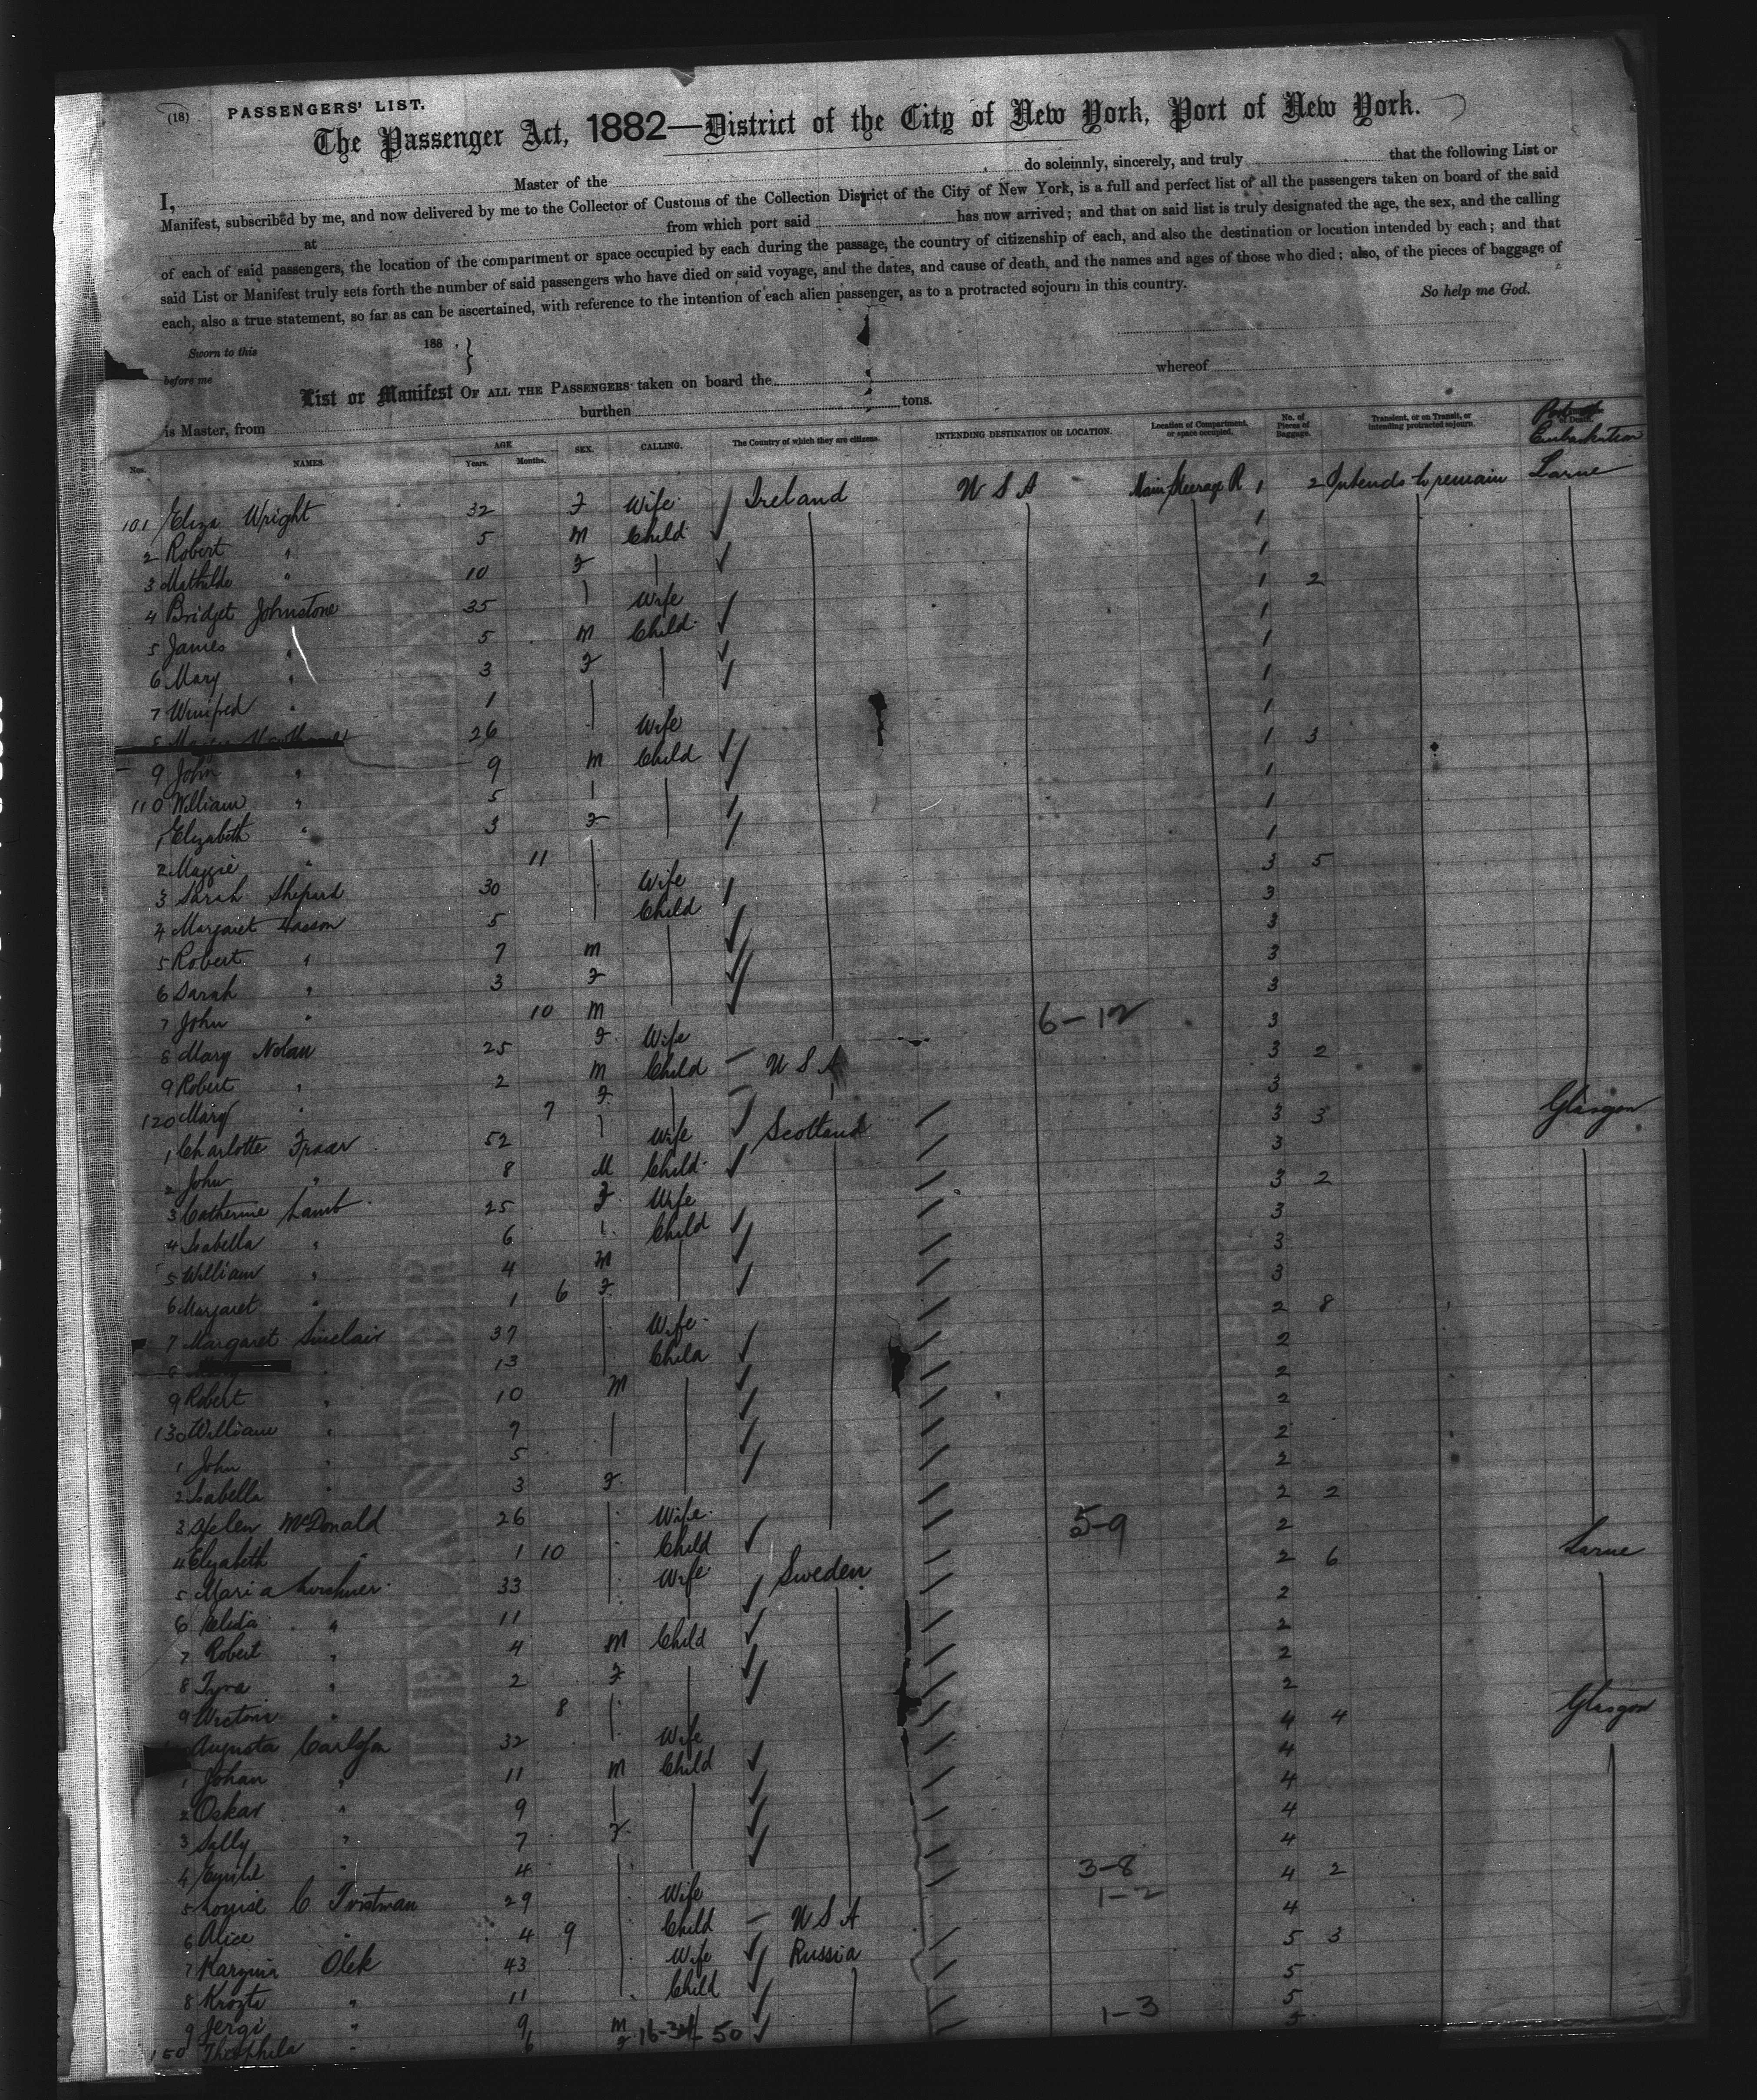 (18) PASSENGERS' LIST.
The Passenger Act, 1882—District of the City of New York, Port of New York.
I, Master of the do solemnly, sincerely, and truly that the following List or
Manifest, subscribed by me, and now delivered by me to the Collector of Customs of the Collection District of the City of New York, is a full and perfect list of all the passengers taken on board of the said
at from which port said has now arrived; and that on said list is truly designated the age, the sex, and the calling
of each of said passengers, the location of the compartment or space occupied by each during the passage, the country of citizenship of each, and also the destination or location intended by each; and that
said List or Manifest truly sets forth the number of said passengers who have died on said voyage, and the dates, and cause of death, and the names and ages of those who died; also, of the pieces of baggage of
each, also a true statement, so far as can be ascertained, with reference to the intention of each alien passenger, as to a protracted sojourn in this country. So help me God.
Sworn to this 188 .
before me
List or Manifest OF ALL THE PASSENGERS taken on board the whereof
is Master, from burthen tons.
Nos. NAMES. AGE Years. Months. SEX. CALLING. The Country of which they are citizens. INTENDING DESTINATION OR LOCATION. Location of Compartment, or space occupied. No. of Pieces of Baggage. Transient, or on Transit, or intending protracted sojourn. Embarkation
101 Eliza Wright 32 F Wife Ireland U S A Main Steerage R 1 2 Intends to remain Larne
2 Robert " 5 M Child 1
3 Mathilda " 10 F 1
4 Bridget Johnstone 35 Wife 1 2
5 James " 5 M Child 1
6 Mary " 3 F 1
7 Winifred " 1 1
8 26 Wife 1 3
9 John " 9 M Child 1
110 William " 5 1
1 Elizabeth " 3 F 1
2 Maggie " 11 1
3 Sarah Shepard 30 Wife 3 5
4 Margaret 5 Child 3
5 Robert " 7 M 3
6 Sarah " 3 F 3
7 John " 10 M 3
6-12
8 Mary Nolan 25 F Wife 3 2
9 Robert " 2 M Child U S A 3
120 Mary " 7 F 3
1 Charlotte Fraser 52 Wife Scotland 3 3 Glasgow
2 John " 8 M Child 3
3 Catherine Lamb 25 F Wife 3 2
4 Isabella " 6 Child 3
5 William " 4 M 3
6 Margaret " 1 6 F 3
7 Margaret Sinclair 37 Wife 2 8
8 " 13 Child 2
9 Robert " 10 M 2
130 William " 7 2
1 John " 5 2
2 Isabella " 3 F 2
3 Helen McDonald 26 Wife 2 2
5-9
4 Elizabeth " 1 10 Child 2
5 Maria 33 Wife Sweden 2 6 Larne
6 Elida " 11 2
7 Robert " 4 M Child 2
8 Tyra " 2 F 2
9 " 8 2
Augusta Carlsson 32 Wife 4 4 Glasgow
1 Johan " 11 M Child 4
2 Oskar " 9 4
3 Sally " 7 F 4
4 " 4 4
3-8
1-2
5 Louise C 29 Wife 4 2
6 Alice " 4 9 Child U S A 4
7 Olek 43 Wife Russia 5 3
8 " 11 Child 5
9 " 9 M 5
1-3
150 Theophila " 6 F 5
16-34-50